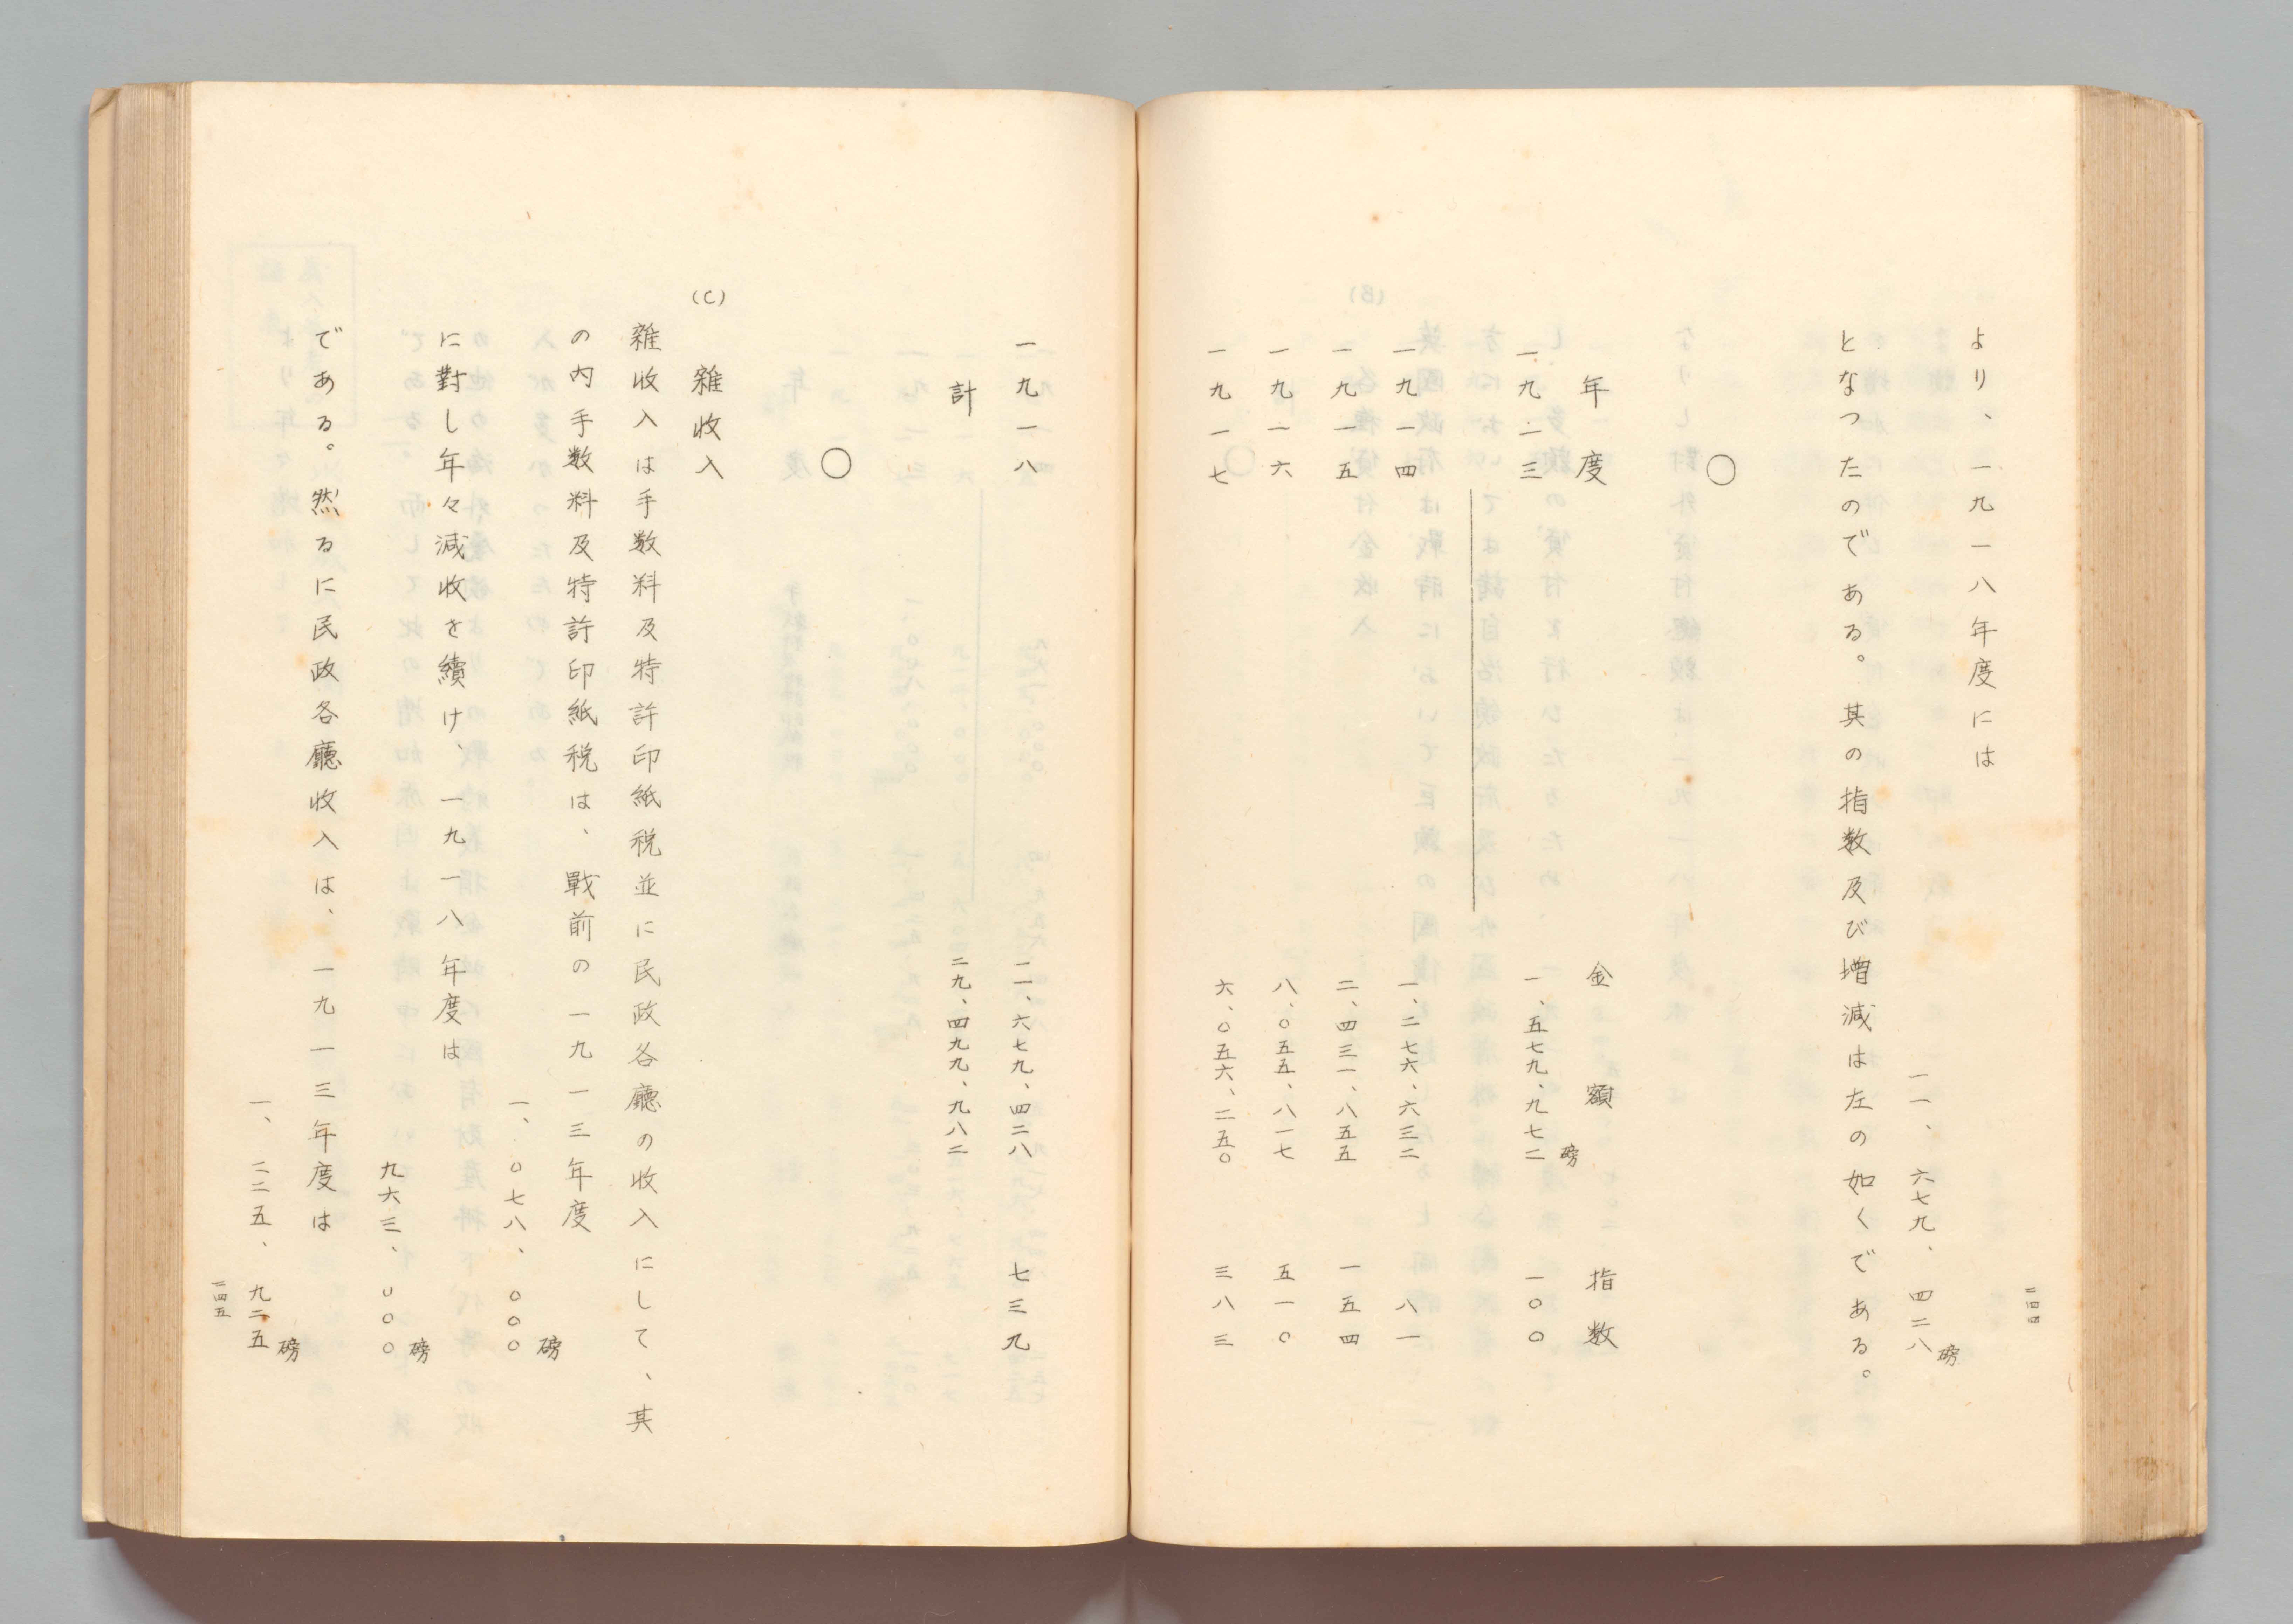 二四四
より、一九一八年度には
一一、六七九、四二八磅
となつたのである。其の指数及び増減は左の如くである。
○
年度　金額　指数
一九一三　一、五七九、九七二磅　一〇〇
一九一四　一、二七六、六三二　八一
一九一五　二、四三一、八五五　一五四
一九一六　八、〇五五、八一七　五一〇
一九一七　六、〇五六、二五〇　三八三
一九一八　一一、六七九、四二八　七三九
計　二九、四九九、九八二
○
(C)　雑收入
雑收入は手数料及特許印紙税並に民政各廳の收入にして、其
の内手数料及特許印紙税は、戰前の一九一三年度
一、〇七八、〇〇〇磅
に對し年々減收を續け、一九一八年度は
九六三、〇〇〇磅
である。然るに民政各廳收入は、一九一三年度は
一、二二五、九二五磅
二四五